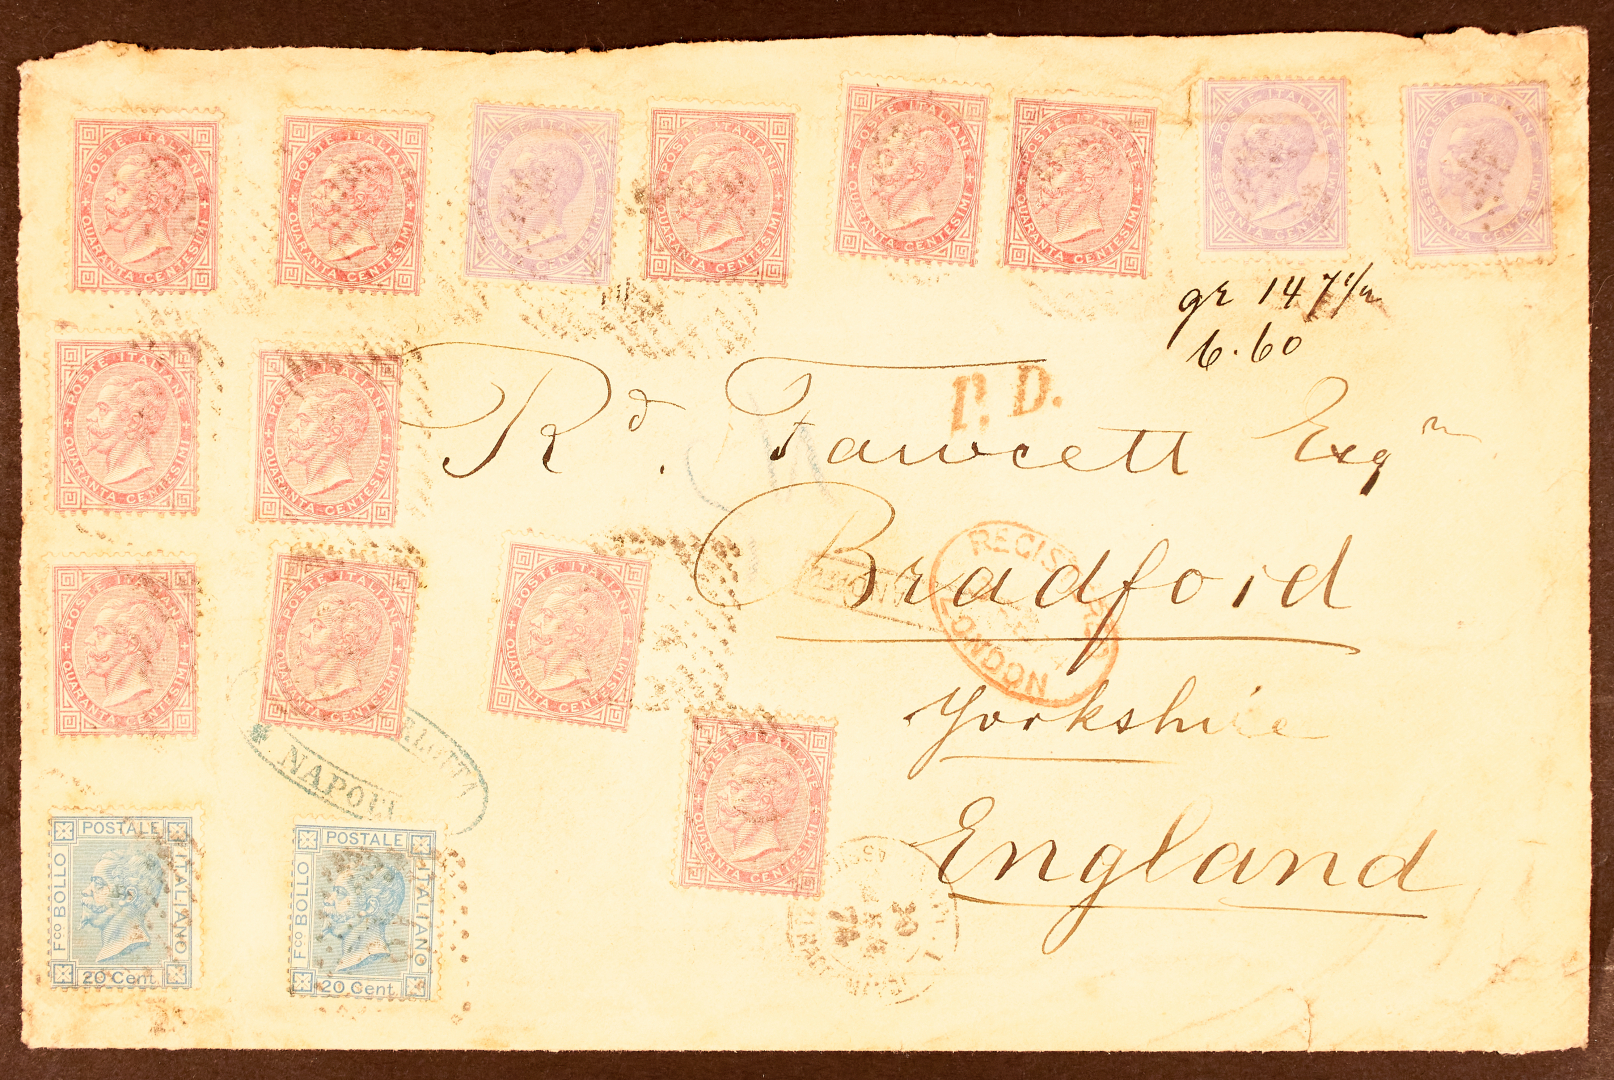 POSTE ITALIANE
QUARANTA CENTESIMI
POSTE ITALIANE
QUARANTA CENTESIMI
POSTE ITALIANE
SESSANTA CENTESIMI
POSTE ITALIANE
QUARANTA CENTESIMI
POSTE ITALIANE
QUARANTA CENTESIMI
POSTE ITALIANE
QUARANTA CENTESIMI
POSTE ITALIANE
SESSANTA CENTESIMI
POSTE ITALIANE
SESSANTA CENTESIMI
gr 147 1/2
6.60
POSTE ITALIANE
QUARANTA CENTESIMI
POSTE ITALIANE
QUARANTA CENTESIMI
P. D.
Rd. Fawcett Esqre
Bradford
REGISTERED
LONDON
Yorkshire
England
POSTE ITALIANE
QUARANTA CENTESIMI
POSTE ITALIANE
QUARANTA CENTESIMI
POSTE ITALIANE
QUARANTA CENTESIMI
POSTE ITALIANE
QUARANTA CENTESIMI
NAPOLI
Fco BOLLO POSTALE ITALIANO
20 Cent.
Fco BOLLO POSTALE ITALIANO
20 Cent.
20
74